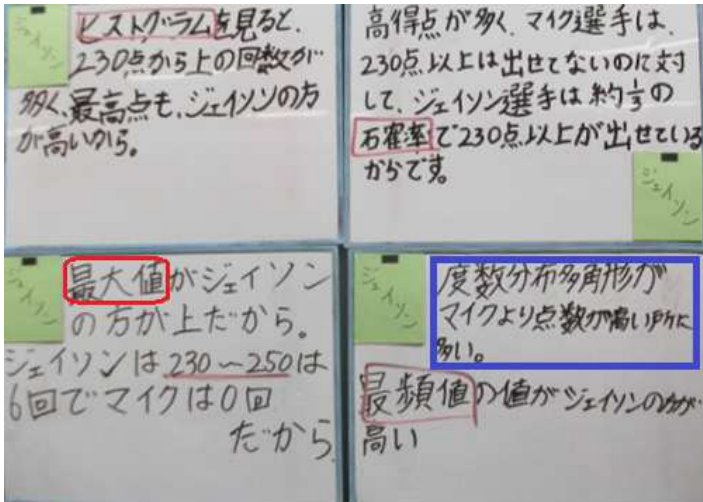 ジェイソン
ヒストグラムを見ると、
230点から上の回数が
多く、最高点も、ジェイソンの方
が高いから。
高得点が多く、マイク選手は、
230点以上は出せてないのに対
して、ジェイソン選手は約1/3の
確率で230点以上が出せている
からです。
ジェイソン
ジェイソン
最大値がジェイソン
の方が上だから。
ジェイソンは230〜250は
6回でマイクは0回
だから
ジェイソン
度数分布多角形が
マイクより点数が高い所に
多い。
最頻値の値がジェイソンの方が
高い